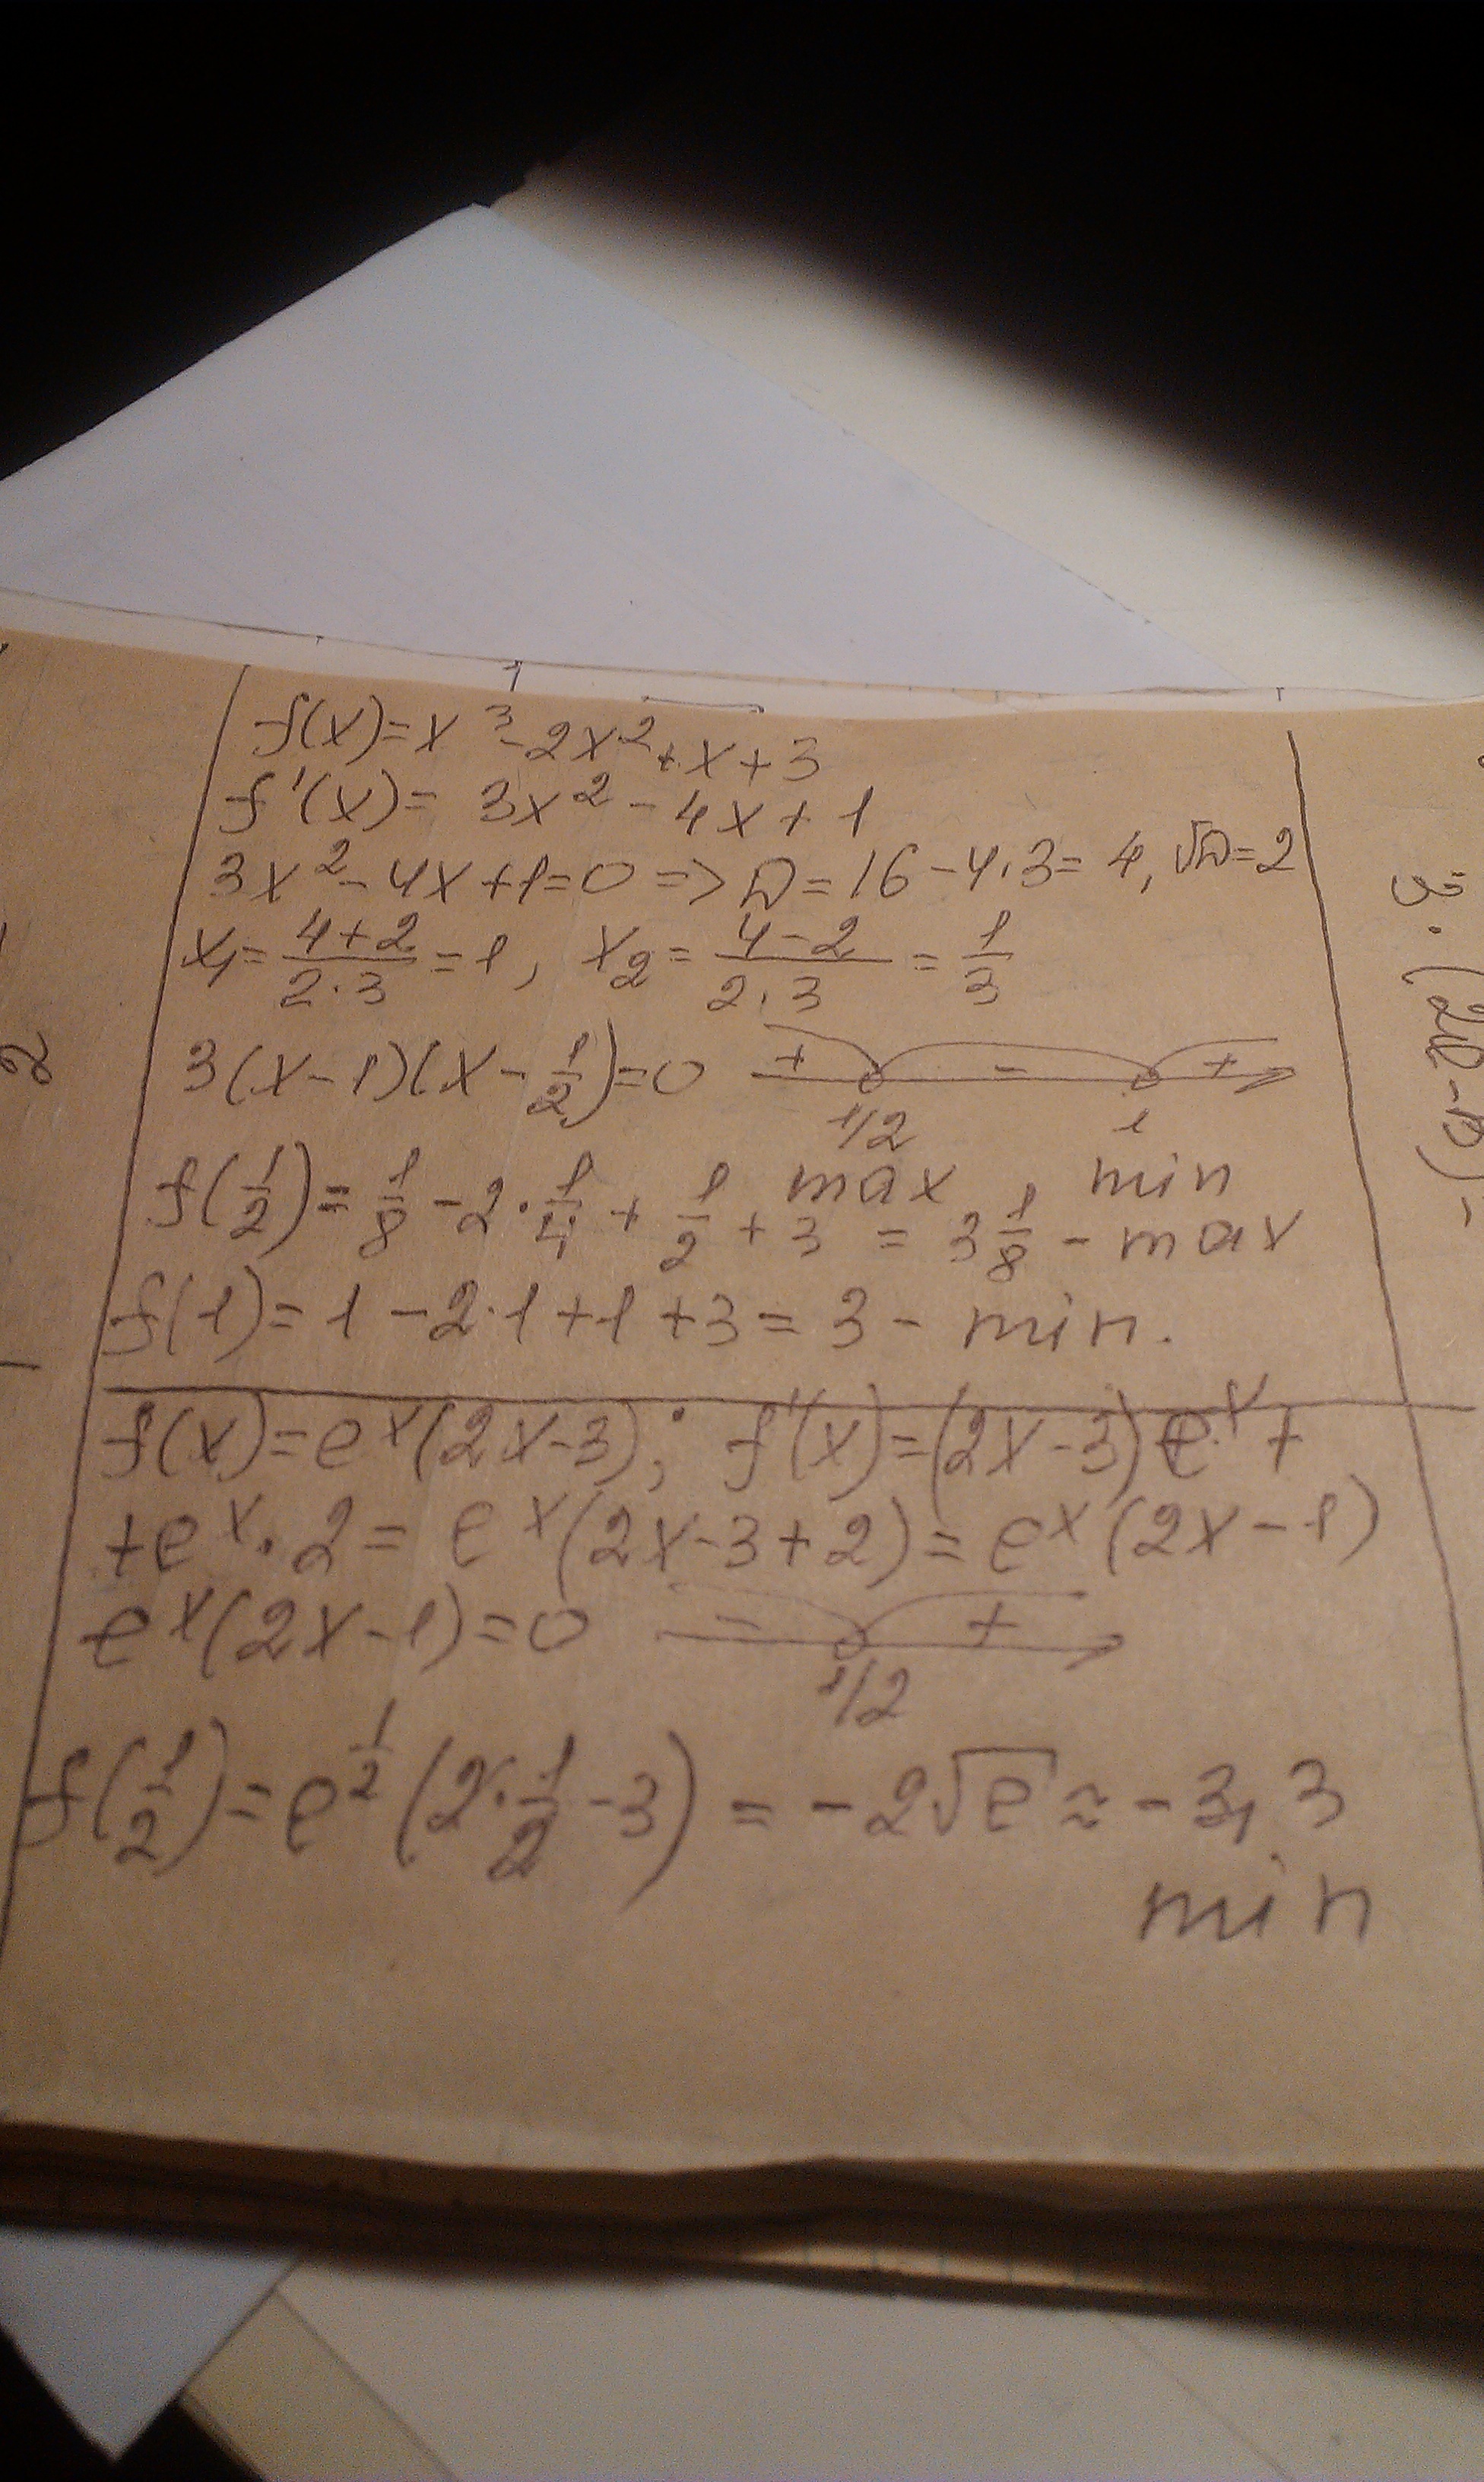 f(x)=x³-2x²+x+3
f'(x)= 3x²-4x+1
3x²-4x+1=0 => D=16-4·3=4, √D=2
x₁=(4+2)/(2·3)=1, x₂=(4-2)/(2·3)=1/3
3(x-1)(x-1/2)=0 + - +
1/2 1
max min
f(1/2)=1/8-2·1/4+1/2+3=3 1/8-max
f(1)=1-2·1+1+3=3-min.
f(x)=eˣ(2x-3); f'(x)=(2x-3)eˣ+
+eˣ·2=eˣ(2x-3+2)=eˣ(2x-1)
eˣ(2x-1)=0 - +
1/2
f(1/2)=e^(1/2)(2·1/2-3)=-2√e≈-3,3
min